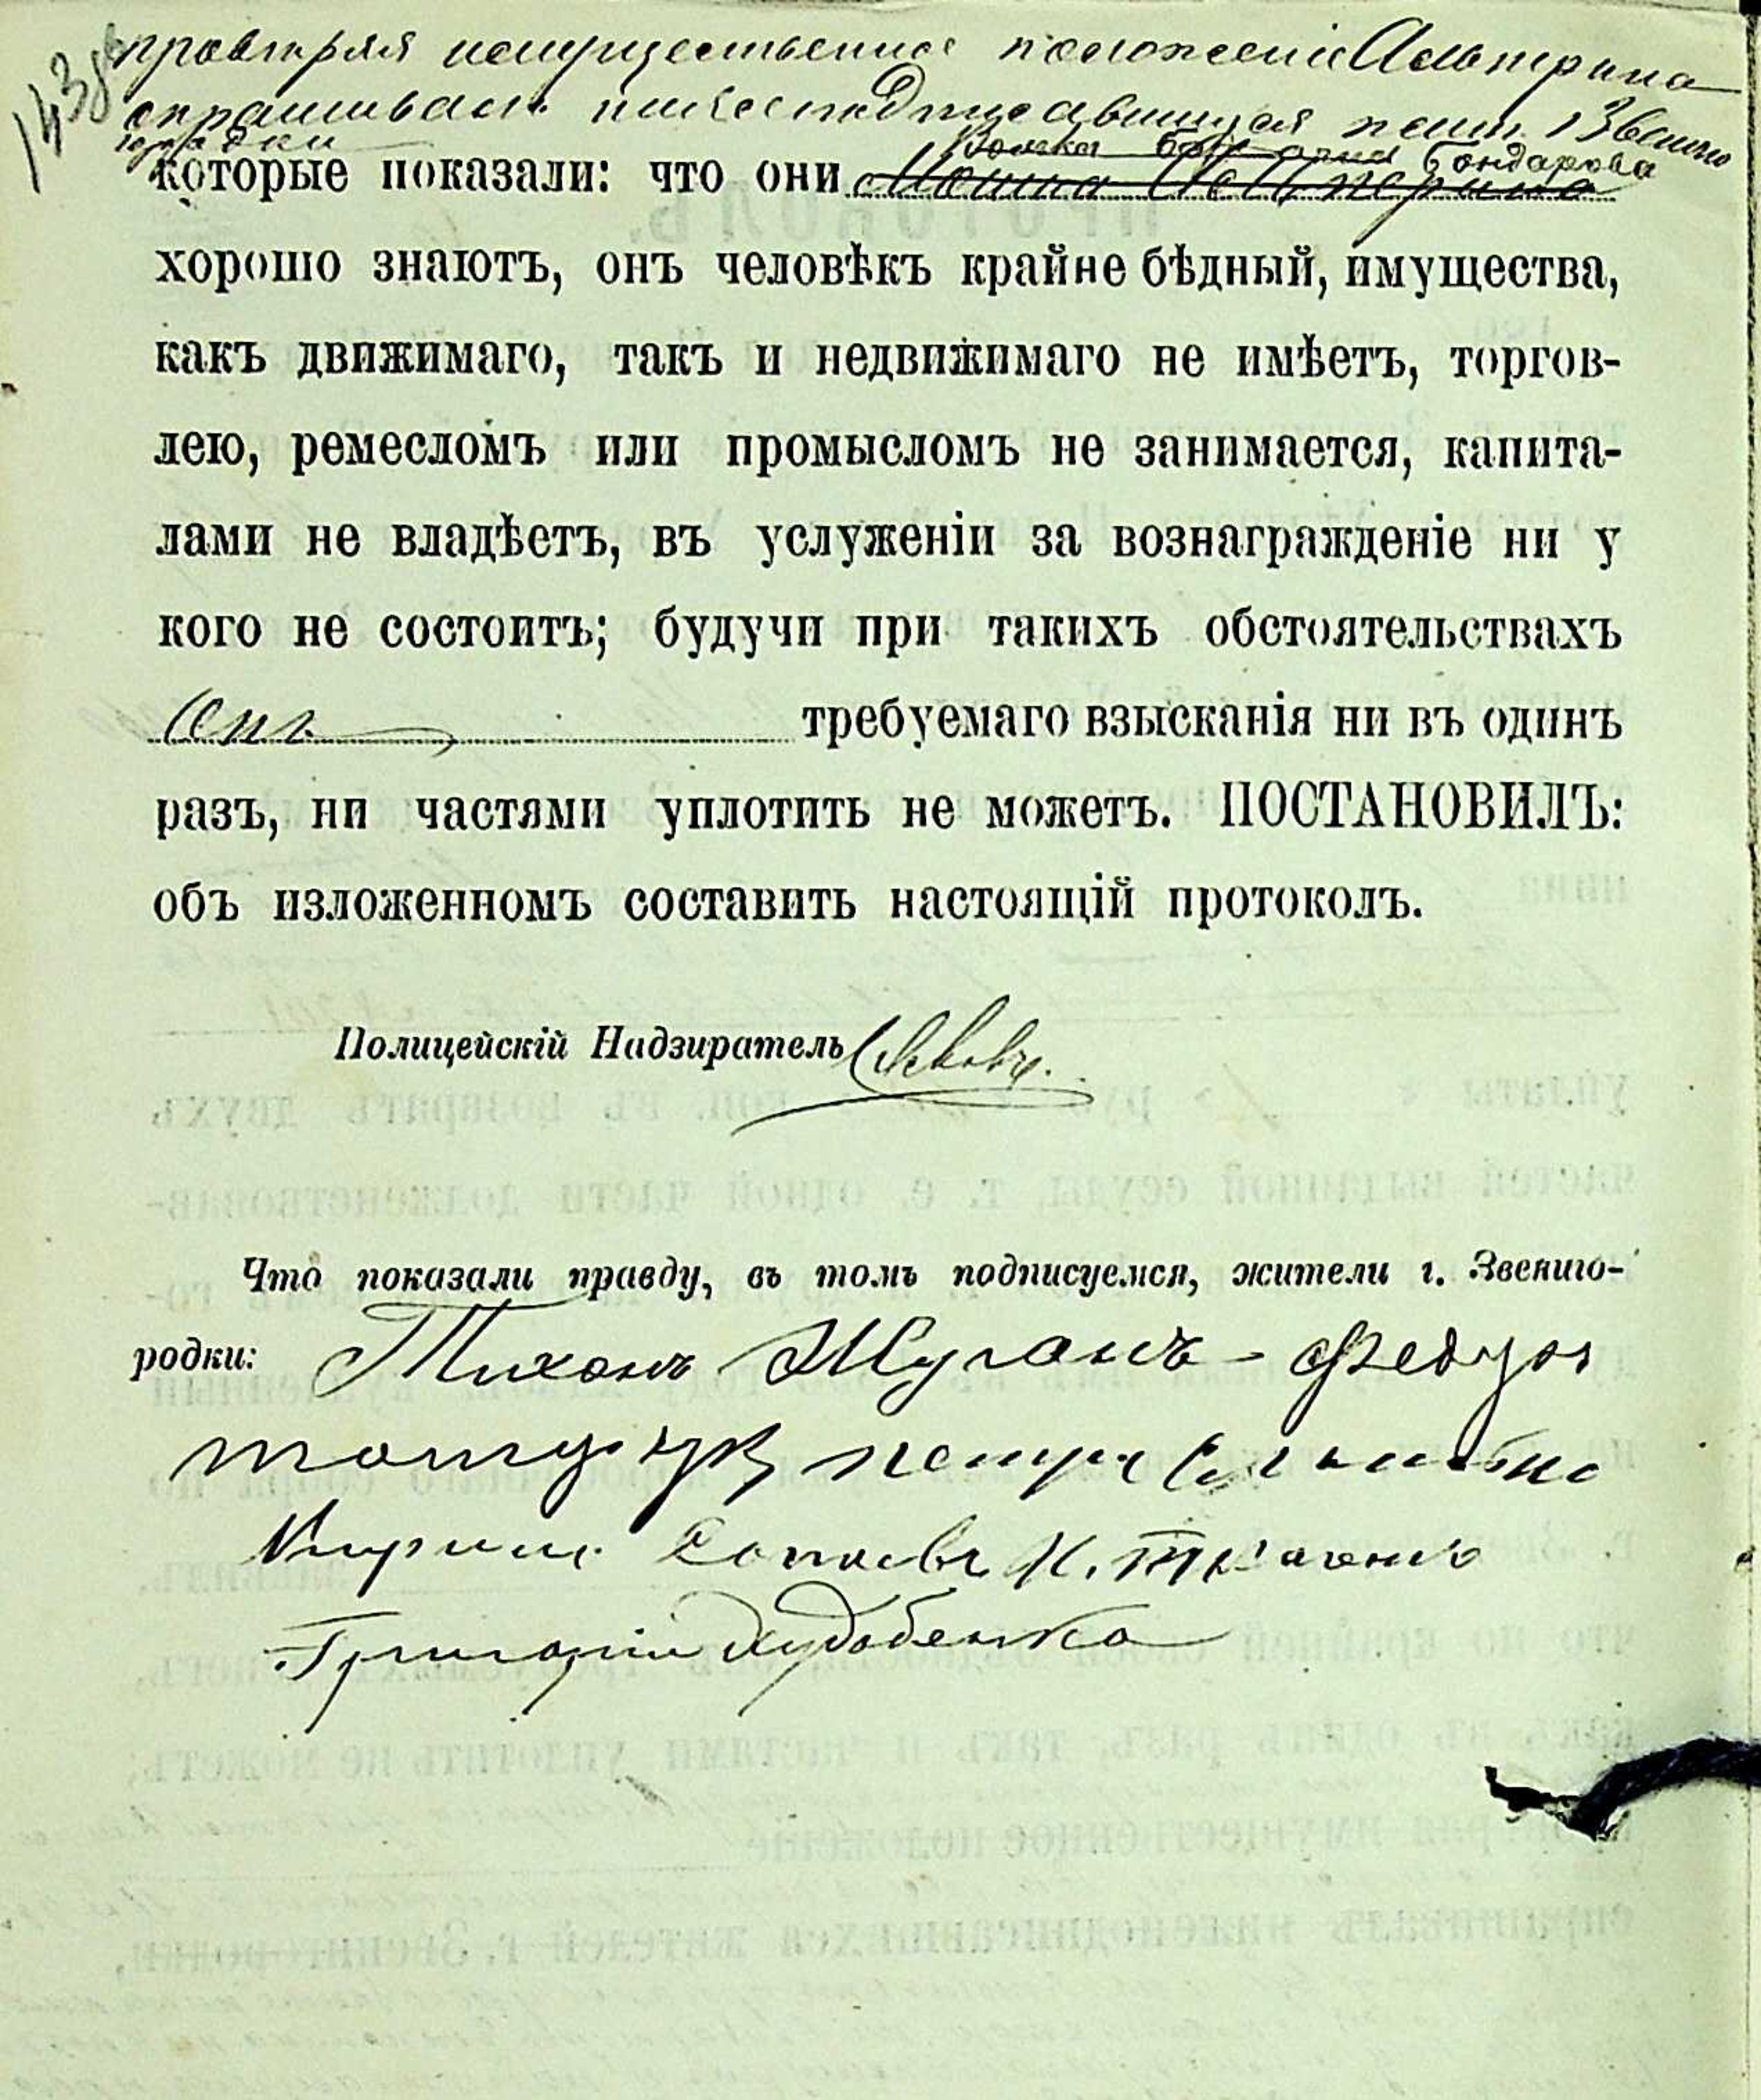 143
провѣряя имущественное положеніе Альтрина
спрашивалъ нижеподписавшихся жит. г Звениго
родки
Бондарова
которые показали: что они
хорошо знаютъ, онъ человѣкъ крайне бѣдный, имущества,
какъ движимаго, такъ и недвижимаго не имѣетъ, торгов-
лею, ремесломъ или промысломъ не занимается, капита-
лами не владѣетъ, въ услуженіи за вознагражденіе ни у
кого не состоитъ; будучи при такихъ обстоятельствахъ
онъ требуемаго взысканія ни въ одинъ
разъ, ни частями уплотить не можетъ. ПОСТАНОВИЛЪ:
объ изложенномъ составить настоящій протоколъ.
Полицейскій Надзиратель
Что показали правду, въ томъ подписуемся, жители г. Звениго-
родки: Тихонъ Жуганъ Федор
Петръ
Кирилъ
Григорій Худобенко